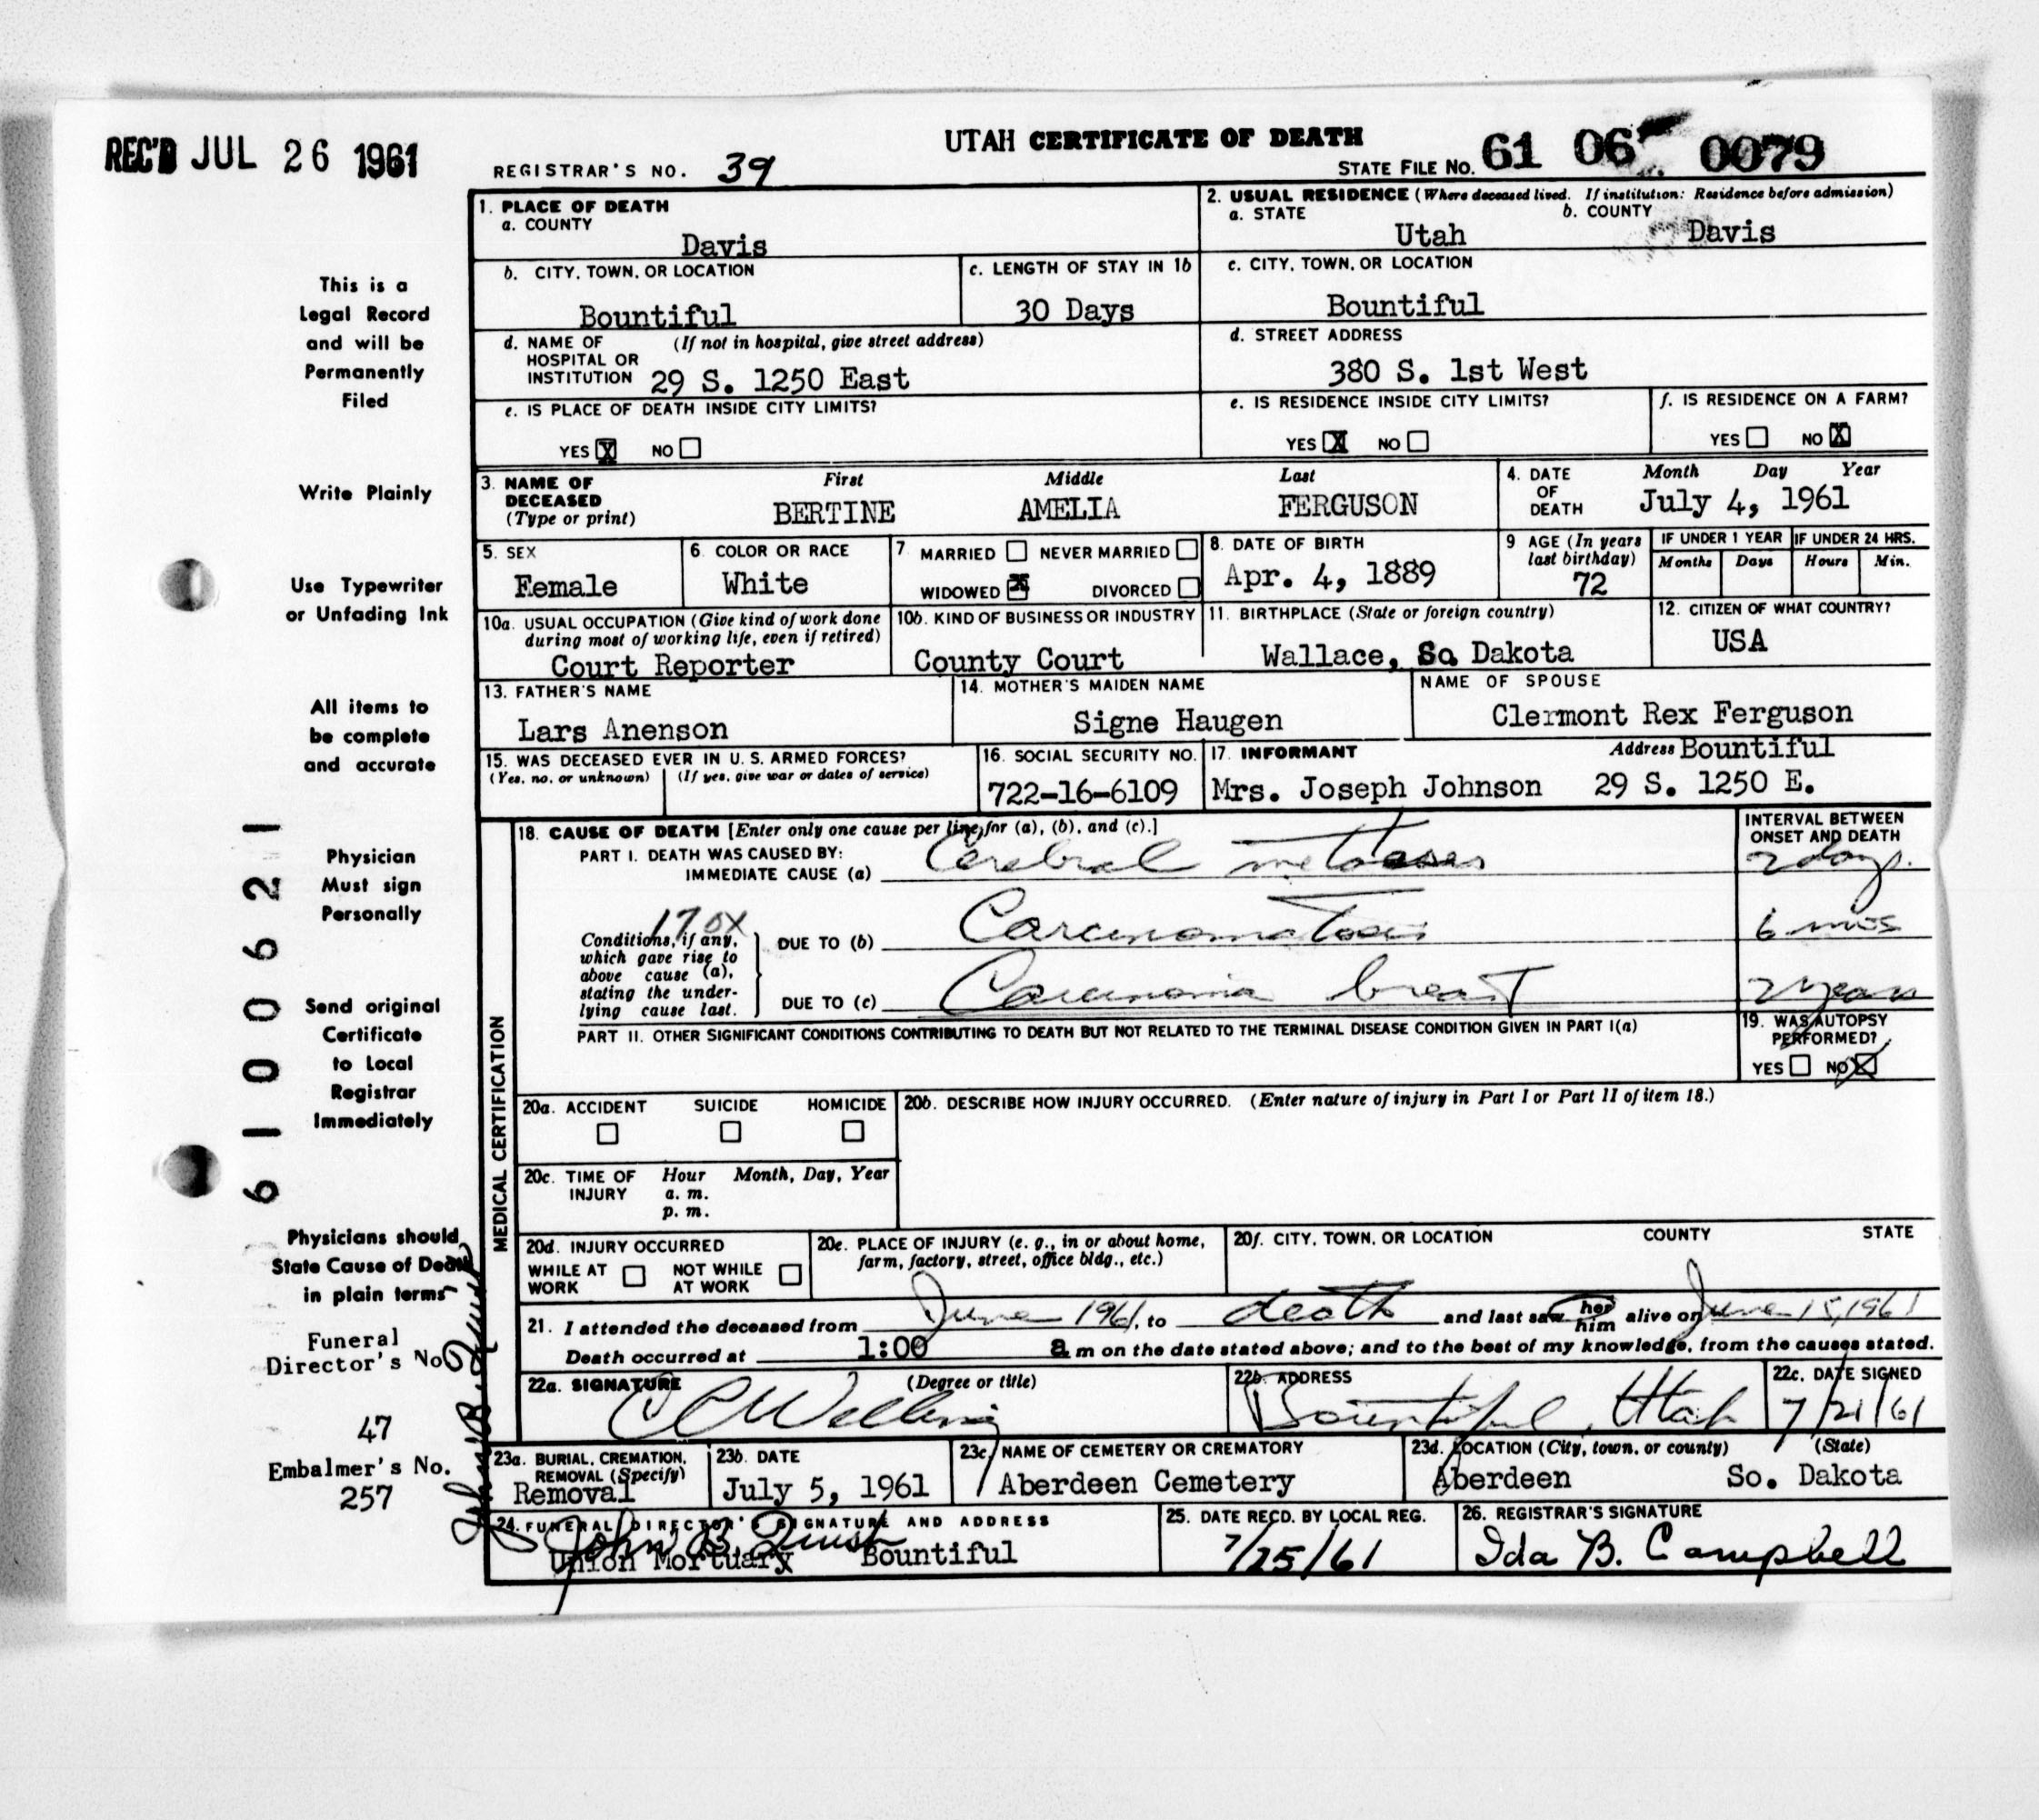 REC'D JUL 26 1961
UTAH CERTIFICATE OF DEATH
REGISTRAR'S NO. 39
STATE FILE NO. 61 06 0079
This is a
Legal Record
and will be
Permanently
Filed
Write Plainly
Use Typewriter
or Unfading Ink
All items to
be complete
and accurate
Physician
Must sign
Personally
Send original
Certificate
to Local
Registrar
Immediately
Physicians should
State Cause of Death
in plain terms
Funeral
Director's No
47
Embalmer's No.
257
61 00621
1. PLACE OF DEATH
a. COUNTY
Davis
2. USUAL RESIDENCE (Where deceased lived. If institution: Residence before admission)
a. STATE
Utah
b. COUNTY
Davis
b. CITY, TOWN, OR LOCATION
Bountiful
c. LENGTH OF STAY IN 1b
30 Days
c. CITY, TOWN, OR LOCATION
Bountiful
d. NAME OF (If not in hospital, give street address)
HOSPITAL OR
INSTITUTION 29 S. 1250 East
d. STREET ADDRESS
380 S. 1st West
e. IS PLACE OF DEATH INSIDE CITY LIMITS?
YES X NO
e. IS RESIDENCE INSIDE CITY LIMITS?
YES X NO
f. IS RESIDENCE ON A FARM?
YES NO X
3. NAME OF
DECEASED
(Type or print)
First Middle Last
BERTINE AMELIA FERGUSON
4. DATE
OF
DEATH
Month Day Year
July 4, 1961
5. SEX
Female
6. COLOR OR RACE
White
7 MARRIED NEVER MARRIED
WIDOWED X DIVORCED
8. DATE OF BIRTH
Apr. 4, 1889
9 AGE (In years
last birthday)
72
IF UNDER 1 YEAR
Months Days
IF UNDER 24 HRS.
Hours Min.
10a. USUAL OCCUPATION (Give kind of work done
during most of working life, even if retired)
Court Reporter
10b. KIND OF BUSINESS OR INDUSTRY
County Court
11. BIRTHPLACE (State or foreign country)
Wallace, So. Dakota
12. CITIZEN OF WHAT COUNTRY?
USA
13. FATHER'S NAME
Lars Anenson
14. MOTHER'S MAIDEN NAME
Signe Haugen
NAME OF SPOUSE
Clermont Rex Ferguson
15. WAS DECEASED EVER IN U. S. ARMED FORCES?
(Yes, no, or unknown) (If yes, give war or dates of service)
16. SOCIAL SECURITY NO.
722-16-6109
17. INFORMANT Address Bountiful
Mrs. Joseph Johnson 29 S. 1250 E.
MEDICAL CERTIFICATION
18. CAUSE OF DEATH [Enter only one cause per line for (a), (b), and (c).]
PART I. DEATH WAS CAUSED BY:
IMMEDIATE CAUSE (a) Cerebral metastases
INTERVAL BETWEEN
ONSET AND DEATH
2 days.
170X
Conditions, if any,
which gave rise to
above cause (a),
stating the under-
lying cause last.
DUE TO (b) Carcinomatosis
6 mos
DUE TO (c) Carcinoma breast
2 years
PART II. OTHER SIGNIFICANT CONDITIONS CONTRIBUTING TO DEATH BUT NOT RELATED TO THE TERMINAL DISEASE CONDITION GIVEN IN PART I(a)
19. WAS AUTOPSY
PERFORMED?
YES NO X
20a. ACCIDENT SUICIDE HOMICIDE
20b. DESCRIBE HOW INJURY OCCURRED. (Enter nature of injury in Part I or Part II of item 18.)
20c. TIME OF
INJURY
Hour Month, Day, Year
a. m.
p. m.
20d. INJURY OCCURRED
WHILE AT
WORK
NOT WHILE
AT WORK
20e. PLACE OF INJURY (e. g., in or about home,
farm, factory, street, office bldg., etc.)
20f. CITY, TOWN, OR LOCATION COUNTY STATE
21. I attended the deceased from June 1961, to death and last saw her him alive on June 15, 1961
Death occurred at 1:00 a m on the date stated above; and to the best of my knowledge, from the causes stated.
22a. SIGNATURE (Degree or title)
22b. ADDRESS
Bountiful, Utah
22c. DATE SIGNED
7/21/61
23a. BURIAL, CREMATION,
REMOVAL (Specify)
Removal
23b. DATE
July 5, 1961
23c. NAME OF CEMETERY OR CREMATORY
Aberdeen Cemetery
23d. LOCATION (City, town, or county) (State)
Aberdeen So. Dakota
24. FUNERAL DIRECTOR'S SIGNATURE AND ADDRESS
John B.
Union Mortuary Bountiful
25. DATE RECD. BY LOCAL REG.
7/25/61
26. REGISTRAR'S SIGNATURE
Ida B. Campbell